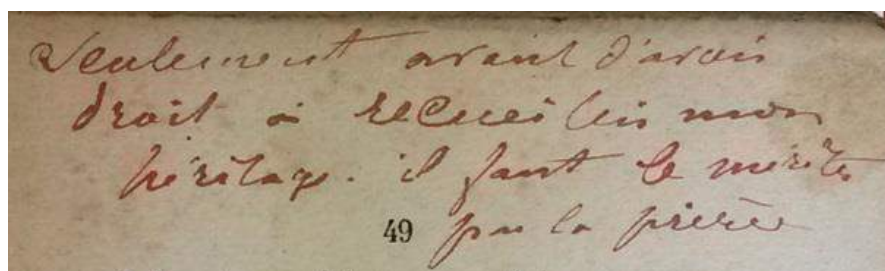 Seulement avant d'avoir
droit à recueillir mon
héritage. il faut le mériter
49 par la prière